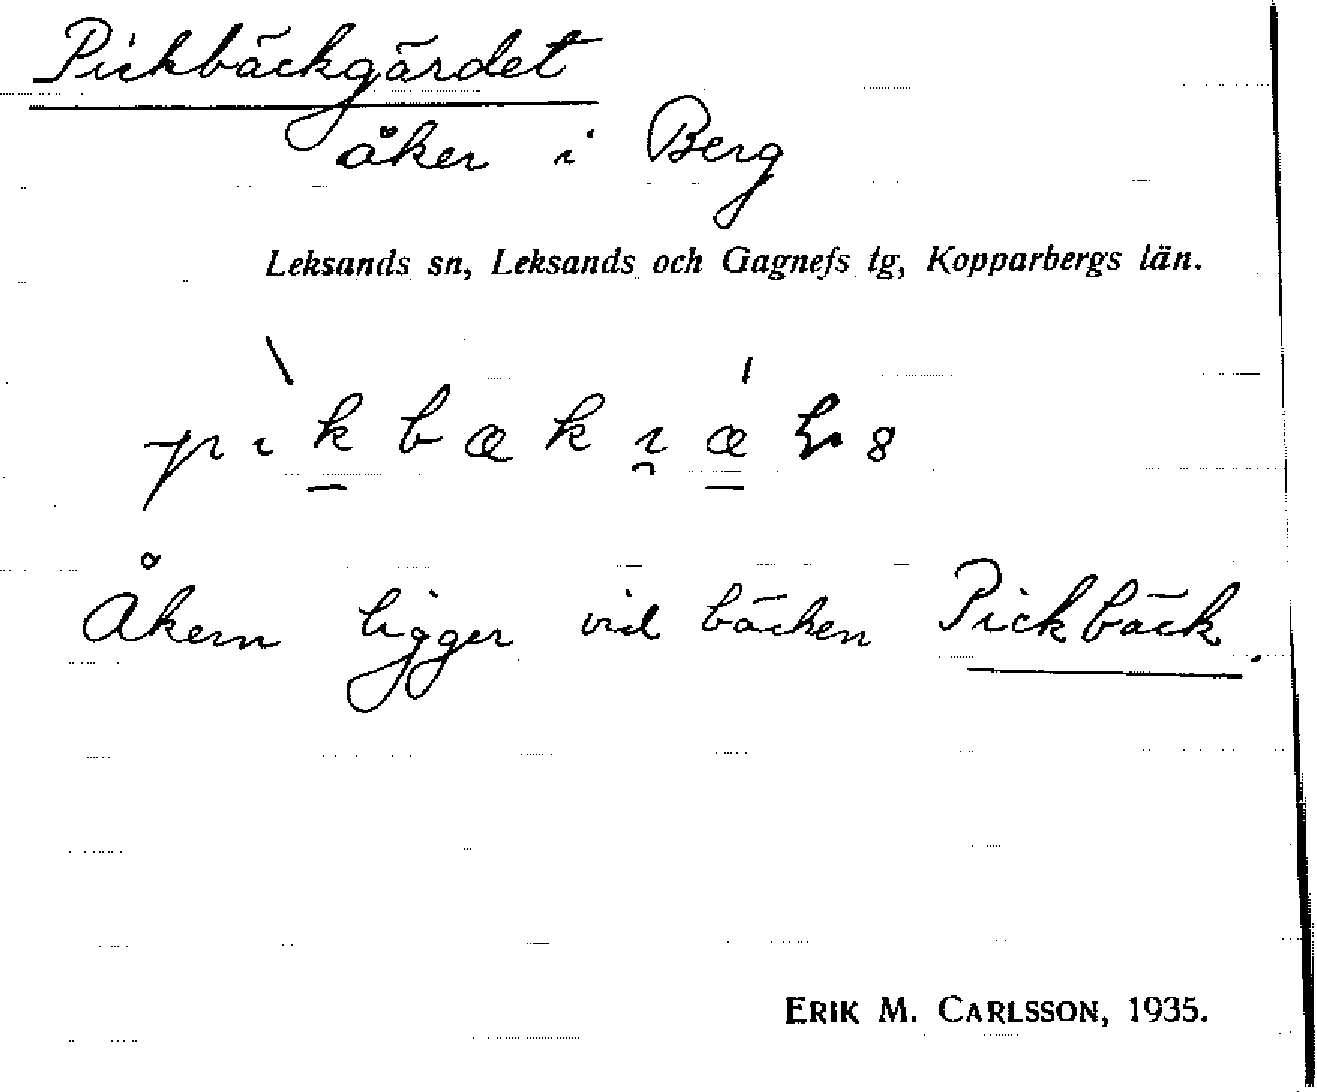 Pickbäckgärdet
åker i Berg
Leksands sn, Leksands och Gagnefs tg, Kopparbergs län.
Åkern ligger vid bäcken Pickbäck.
ERIK M. CARLSSON, 1935.